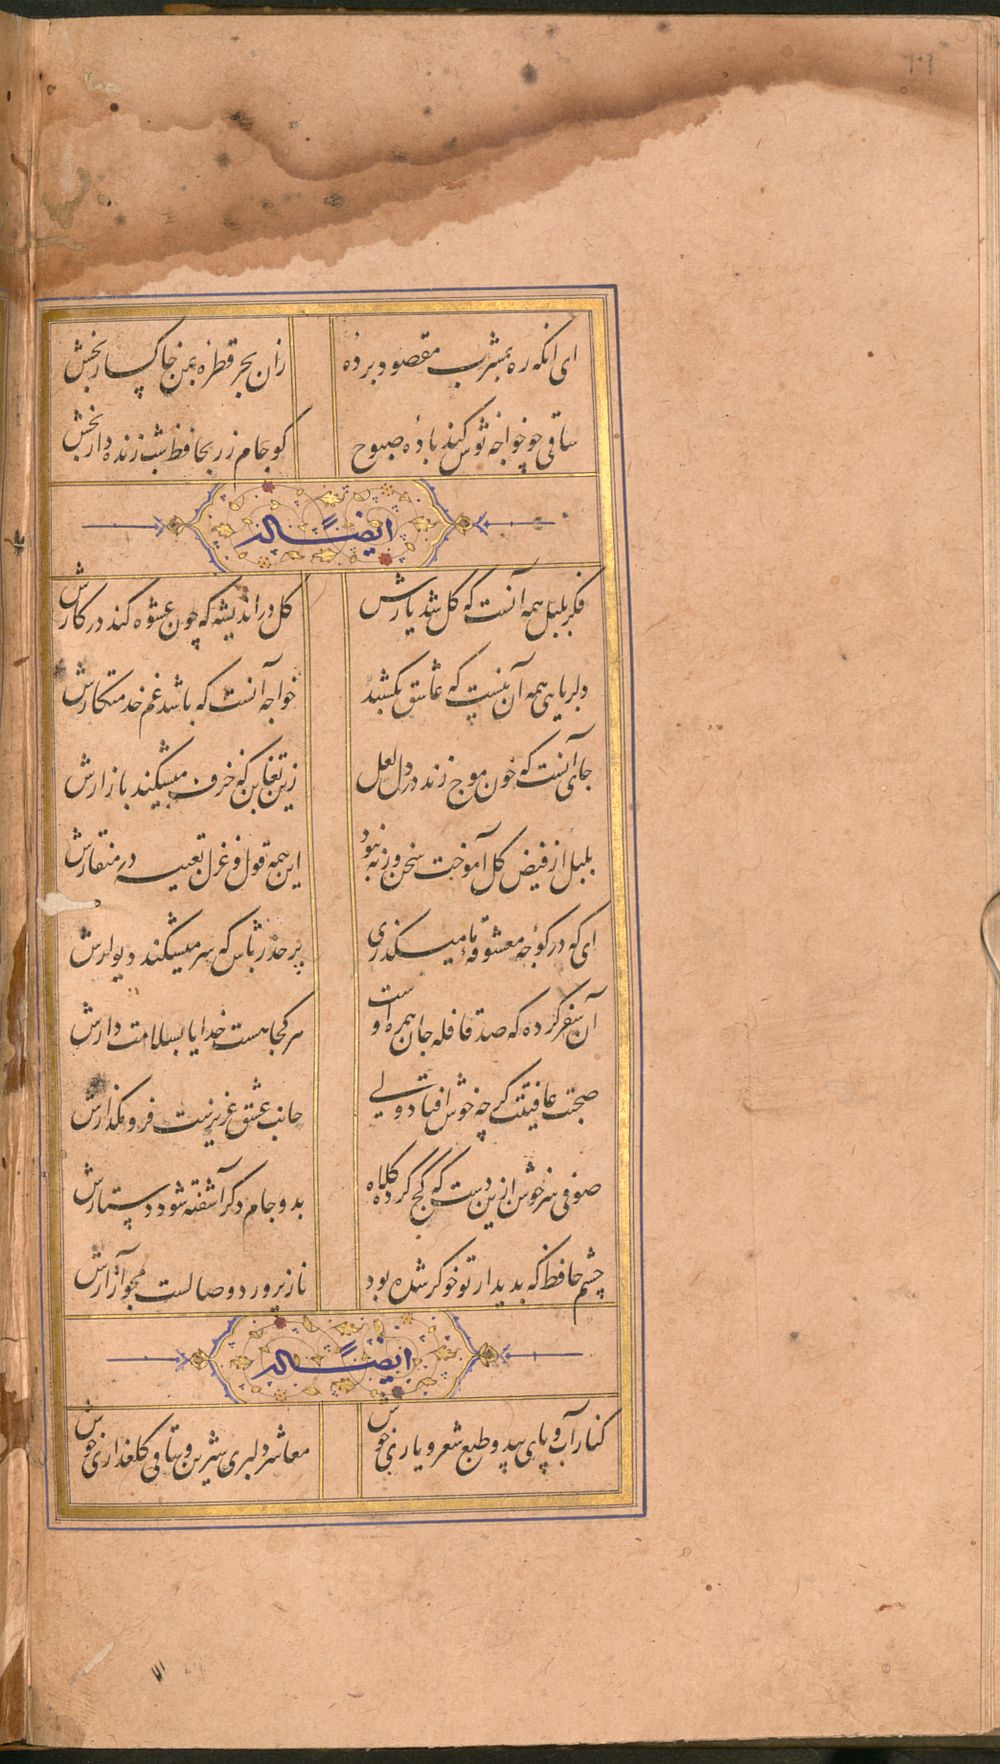 ای انکه ره بمشرب مقصود بردهٔ زان بحر قطرهٔ بمن خاکسار بخش
ساقی چو خواجه نوش کند بادهٔ صبوح کو جام زر بحافظ شب زنده دار بخش
ایضاً له
فکر بلبل همه آنست که کل شد یارش کل در اندیشه که چون عشوه کند در کارش
دلربایی همه آن نیست که عاشق بکشند خواجه آنست که باشد غم خدمتکارش
جای آنست که خون موج زند در دل لعل زین تغابن که خزف میشکند بازارش
بلبل از فیض کل آموخت سخن ورنه نبود این همه قول و غزل تعبیه در منقارش
ای که در کوچه معشوقهٔ ما میکذری پر حذر باش که سر میشکند دیوارش
آن سفر کرده که صد قافله جان همره اوست هر کجا هست خدایا بسلامت دارش
صحبت عافیتت کرچه خوش افتاد دلی جانب عشق عزیزست فرو مکذارش
صوفی سرخوش ازین دست که کج کرد کلاه بدو جام دکر آشفته شود دستارش
چشم حافظ که بدیدار تو خوکر شده بود ناز پرورد وصالست مجو آزارش
ایضاً له
کنار آب و پای بید و طبع شعر و یاری خوش معاشر دلبری شیرین و ساقی کلعذاری خوش
۷۱